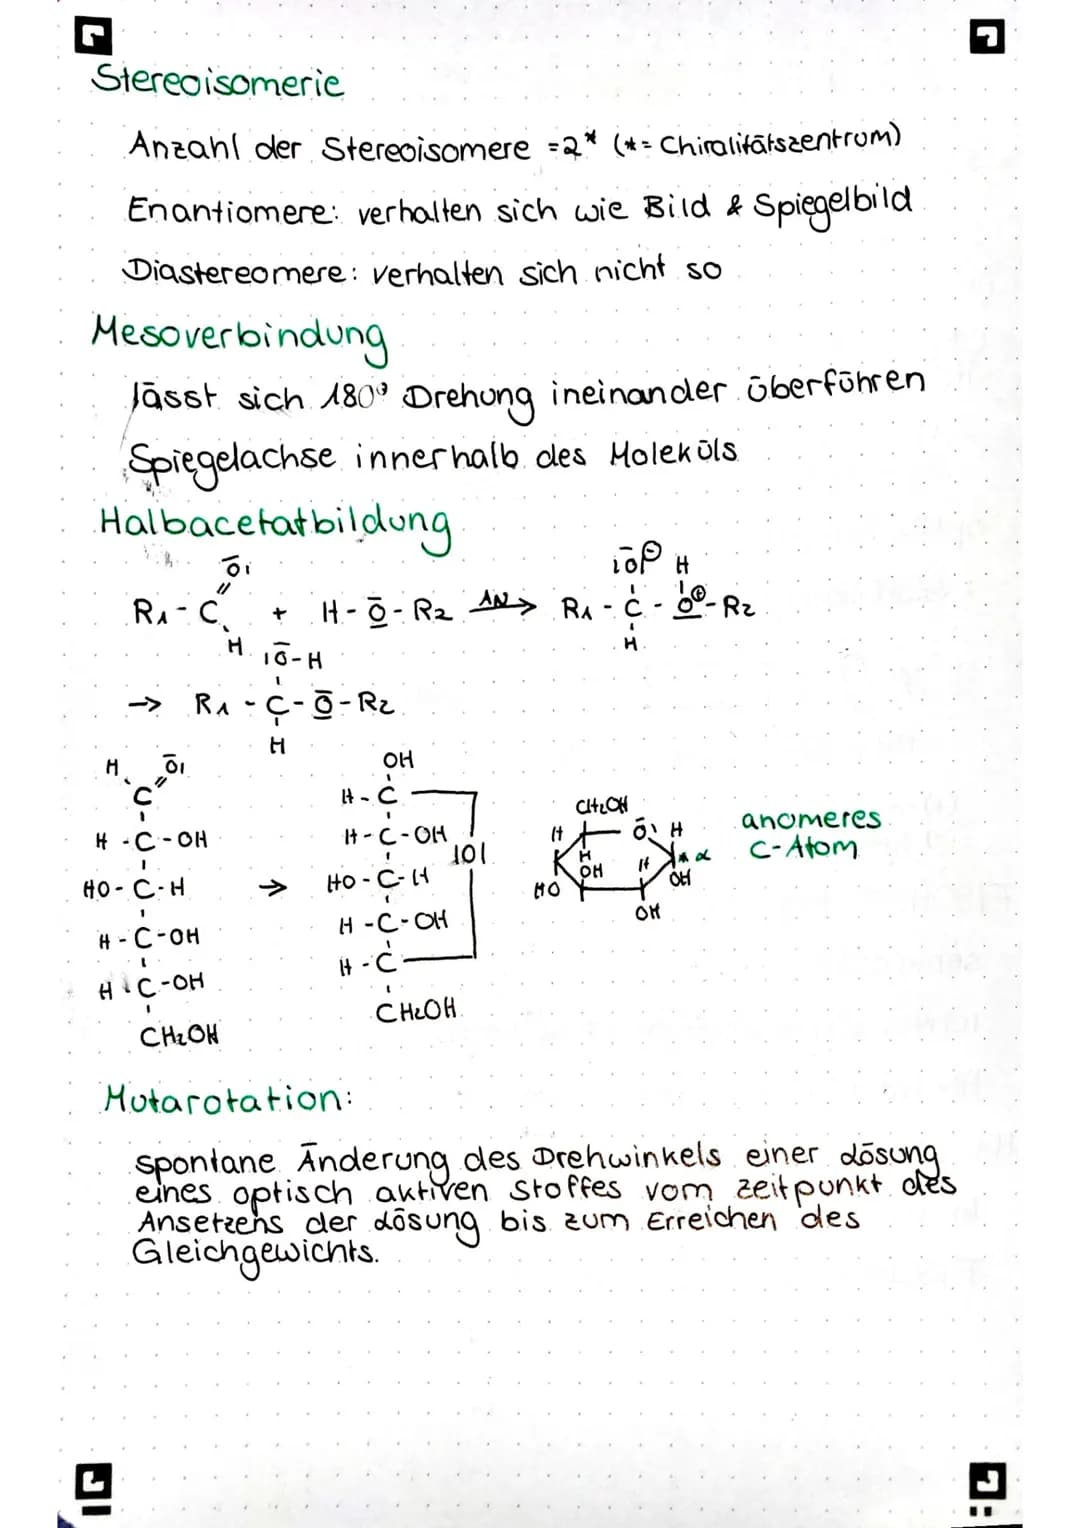 Stereoisomerie
Anzahl der Stereoisomere =2* (*= Chiralitätszentrum)
Enantiomere: verhalten sich wie Bild & Spiegelbild
Diastereomere: verhalten sich nicht so
Mesoverbindung
lässt sich 180° Drehung ineinander überführen
Spiegelachse innerhalb des Moleküls
Halbacetatbildung
R1-C + H-O-R2 AN→ R1-C-O⊕-R2
→ R1-C-O-R2
H
H O OH
C H-C
H-C-OH H-C-OH
HO-C-H → HO-C-H
H-C-OH H-C-OH
H-C-OH H-C
CH2OH CH2OH
CH2OH
H O H
H H α
HO OH OH
OH
anomeres
C-Atom
Mutarotation:
spontane Änderung des Drehwinkels einer Lösung
eines optisch aktiven Stoffes vom Zeitpunkt des
Ansetzens der Lösung bis zum Erreichen des
Gleichgewichts.